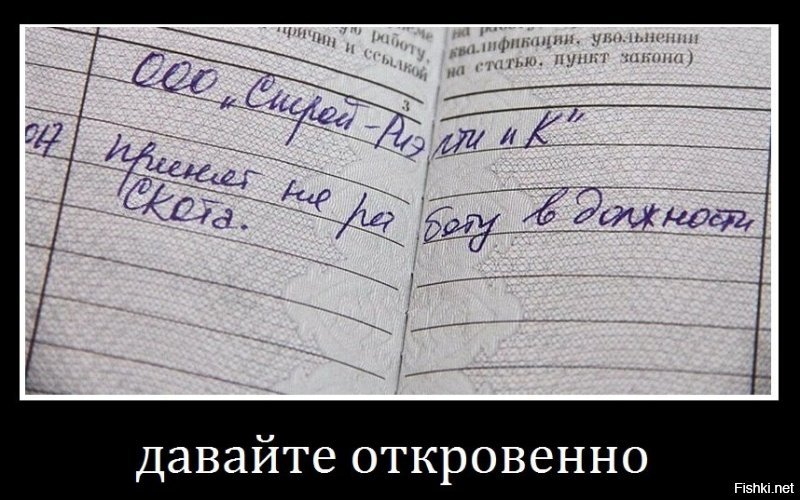 ую работу,
причин и ссылкой
квалификации, увольнении
на статью, пункт закона)
3
ООО „Строй-Риэлти и К"
017 принят на работу в должности
Скота.
давайте откровенно
Fishki.net